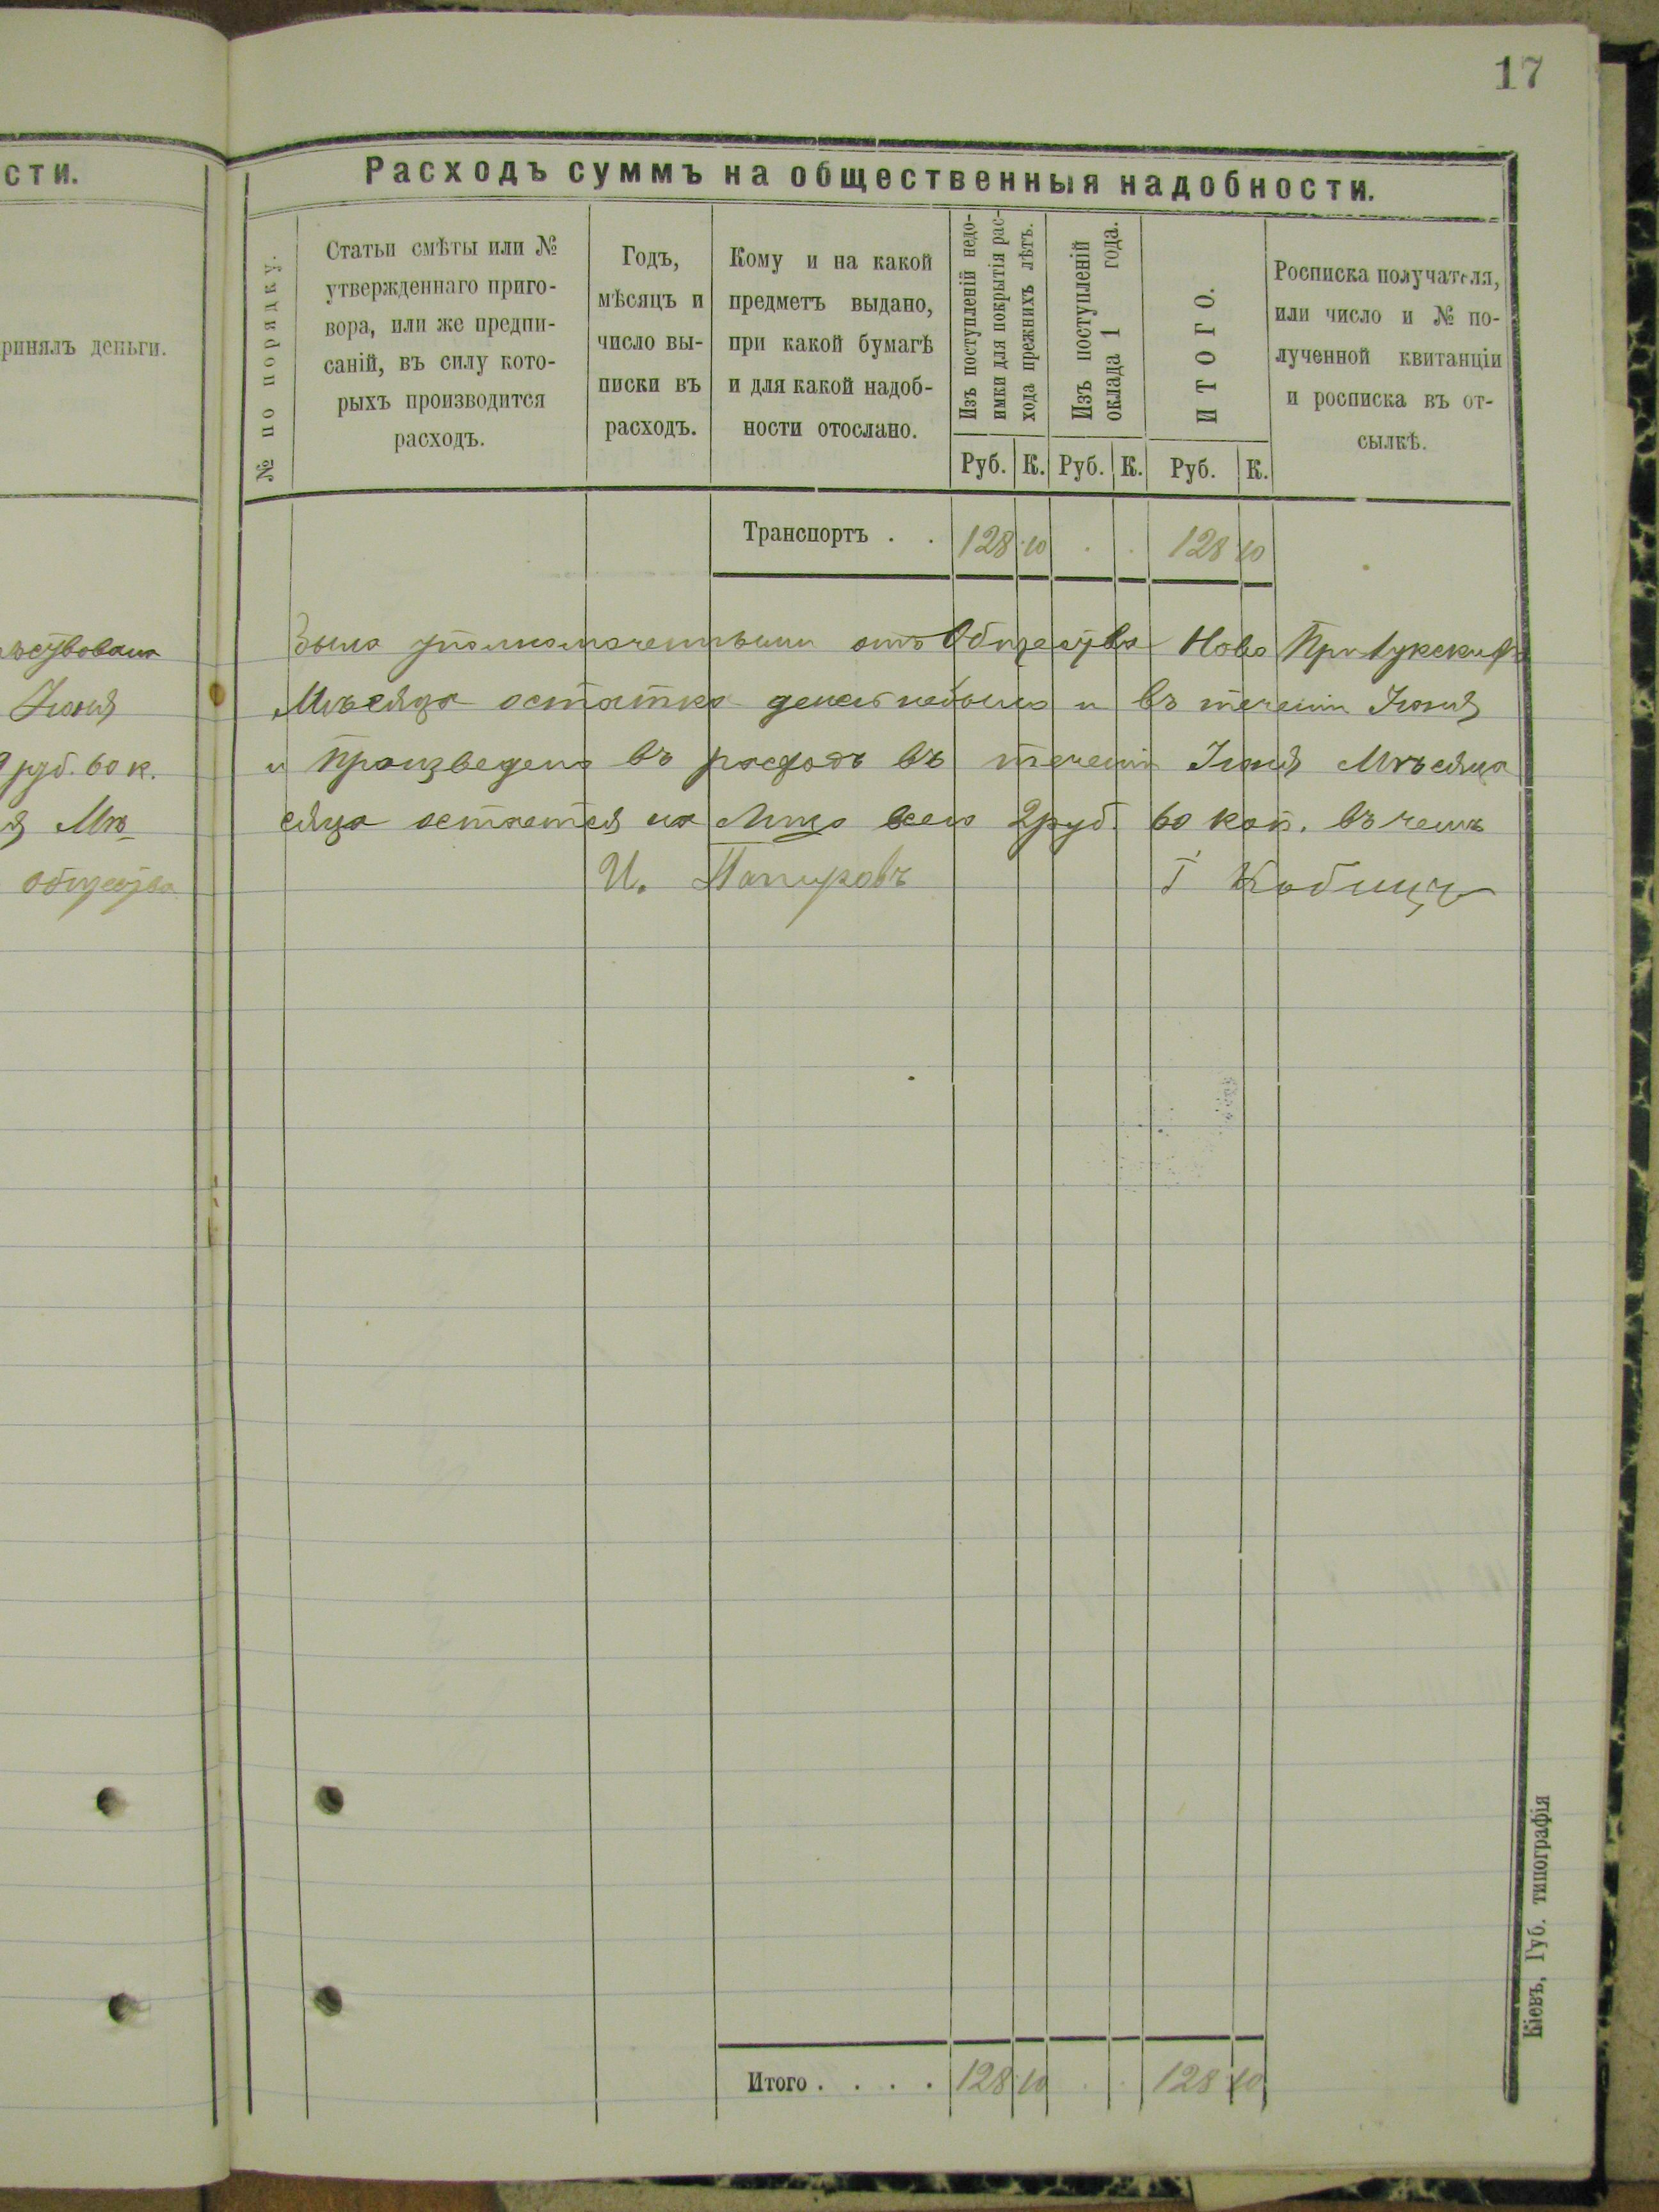 17
сти.
ринялъ деньги.
Іюня
руб. 60 к.
я Мѣ
общества
Расходъ суммъ на общественныя надобности.
№ по порядку.
Статьи смѣты или №
утвержденнаго приго-
вора, или же предпи-
саній, въ силу кото-
рыхъ производится
расходъ.
Годъ,
мѣсяцъ и
число вы-
писки въ
расходъ.
Кому и на какой
предметъ выдано,
при какой бумагѣ
и для какой надоб-
ности отослано.
Изъ поступленій недо-
имки для покрытія рас-
хода прежнихъ лѣтъ.
Изъ поступленій
оклада 1 года.
ИТОГО.
Росписка получателя,
или число и № по-
лученной квитанціи
и росписка въ от-
сылкѣ.
Руб. К. Руб. К. Руб. К.
Транспортъ . . 128 10 . . 128 10
была уполномоченными отъ Общества Ново
Мѣсяца остатка денегъ небыло и въ течении Іюня
и произведено въ расходъ въ течении Іюня Мѣсяца
сяца остается на Лицо всего 2 руб. 60 коп. въ чемъ
И. Г
Итого . . . . 128 10 . . 128 10
Кіевъ, Губ. типографія